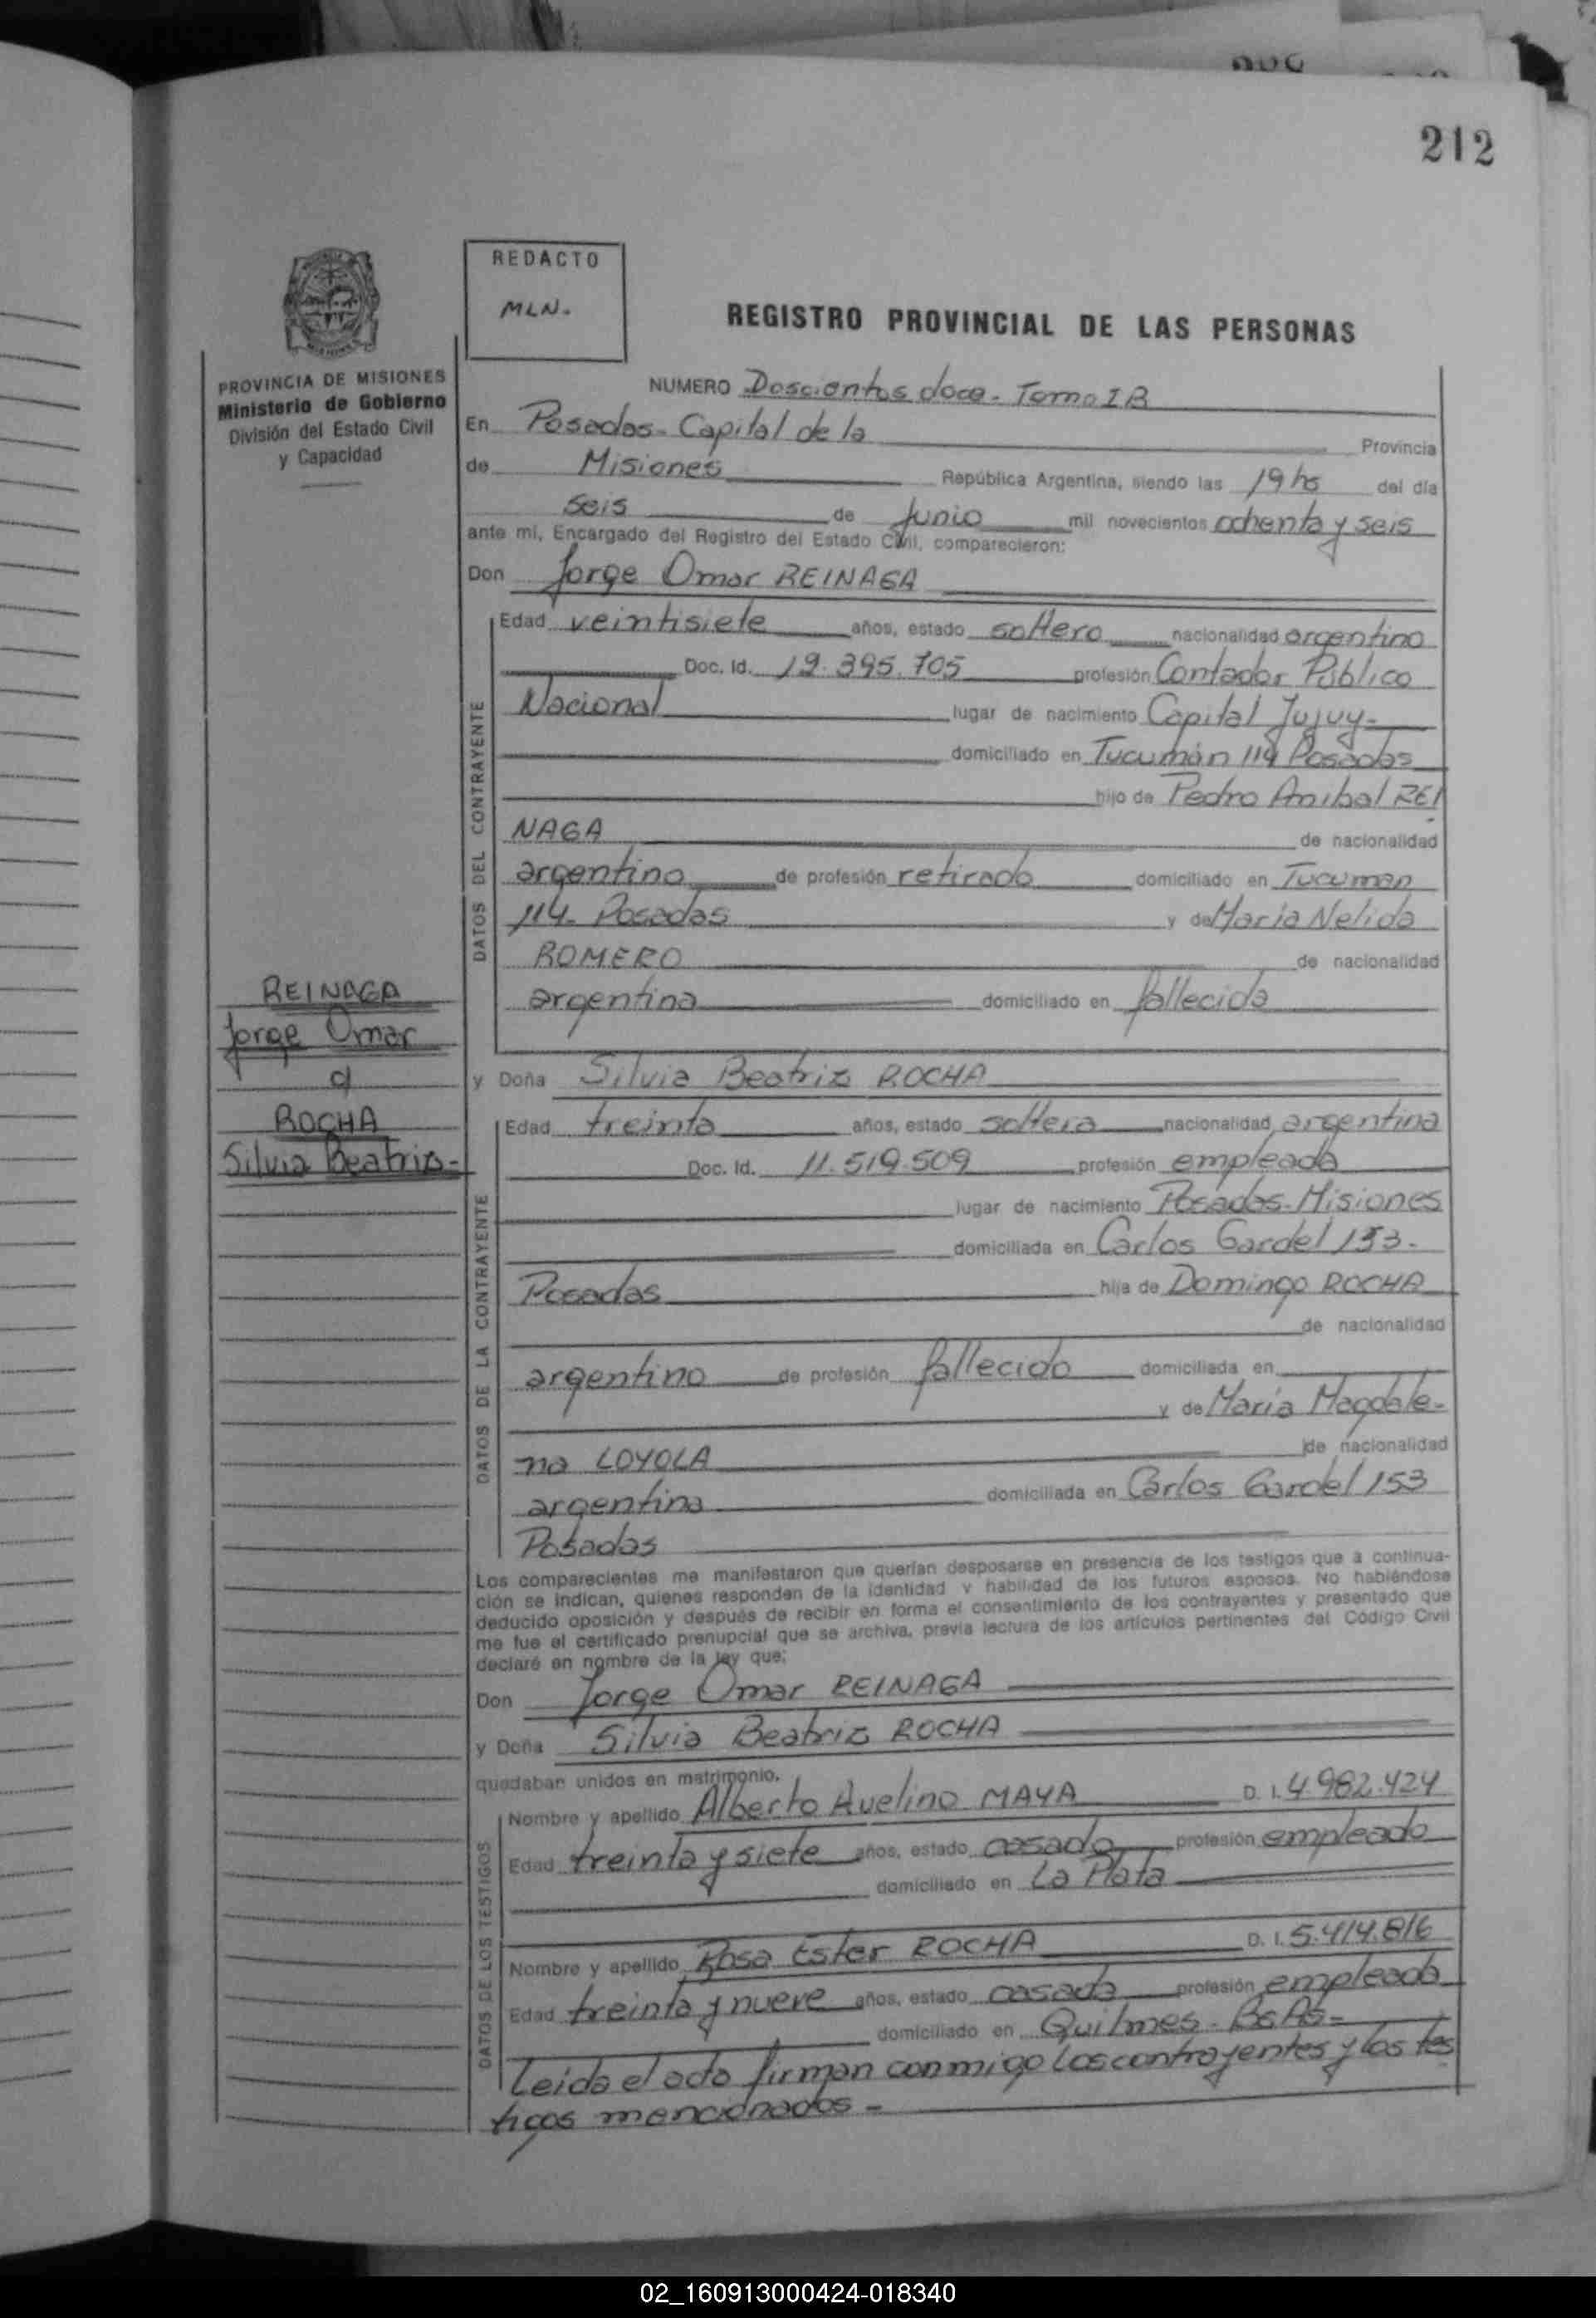 212
REDACTO
MLN.
REGISTRO PROVINCIAL DE LAS PERSONAS
PROVINCIA DE MISIONES
Ministerio de Gobierno
División del Estado Civil
y Capacidad
NUMERO Doscientos doce - Tomo I B
En Posadas - Capital de la Provincia
de Misiones República Argentina, siendo las 19 hs del día
seis de Junio mil novecientos ochenta y seis
ante mí, Encargado del Registro del Estado Civil, comparecieron:
Don Jorge Omar REINAGA
DATOS DEL CONTRAYENTE
Edad veintisiete años, estado soltero nacionalidad argentino
Doc. Id. 19.395.705 profesión Contador Público
Nacional lugar de nacimiento Capital Jujuy-
domiciliado en Tucumán 114 Posadas
hijo de Pedro Anibal REI
NAGA de nacionalidad
argentino de profesión retirado domiciliado en Tucuman
114 - Posadas y de Maria Nelida
ROMERO de nacionalidad
argentina domiciliado en fallecida
REINAGA
Jorge Omar
c/
ROCHA
Silvia Beatriz -
y Doña Silvia Beatriz ROCHA
DATOS DE LA CONTRAYENTE
Edad treinta años, estado soltera nacionalidad argentina
Doc. Id. 11.519.509 profesión empleada
lugar de nacimiento Posadas - Misiones
domiciliada en Carlos Gardel 153 -
Posadas hija de Domingo ROCHA
de nacionalidad
argentino de profesión fallecido domiciliada en
y de María Magdale-
na LOYOLA de nacionalidad
argentina domiciliada en Carlos Gardel 153
Posadas
Los comparecientes me manifestaron que querían desposarse en presencia de los testigos que a continua-
ción se indican, quienes responden de la identidad y habilidad de los futuros esposos. No habiéndose
deducido oposición y después de recibir en forma el consentimiento de los contrayentes y presentado que
me fue el certificado prenupcial que se archiva, previa lectura de los artículos pertinentes del Código Civil
declaré en nombre de la ley que:
Don Jorge Omar REINAGA
y Doña Silvia Beatriz ROCHA
quedaban unidos en matrimonio.
DATOS DE LOS TESTIGOS
Nombre y apellido Alberto Avelino MAYA D. I. 4.982.424
Edad treinta y siete años, estado casado profesión empleado
domiciliado en La Plata
Nombre y apellido Rosa Ester ROCHA D. I. 5.414.816
Edad treinta y nueve años, estado casada profesión empleada
domiciliado en Quilmes - Bs As -
Leida el acta firman conmigo los contrayentes y los tes
tigos mencionados -
02_160913000424-018340